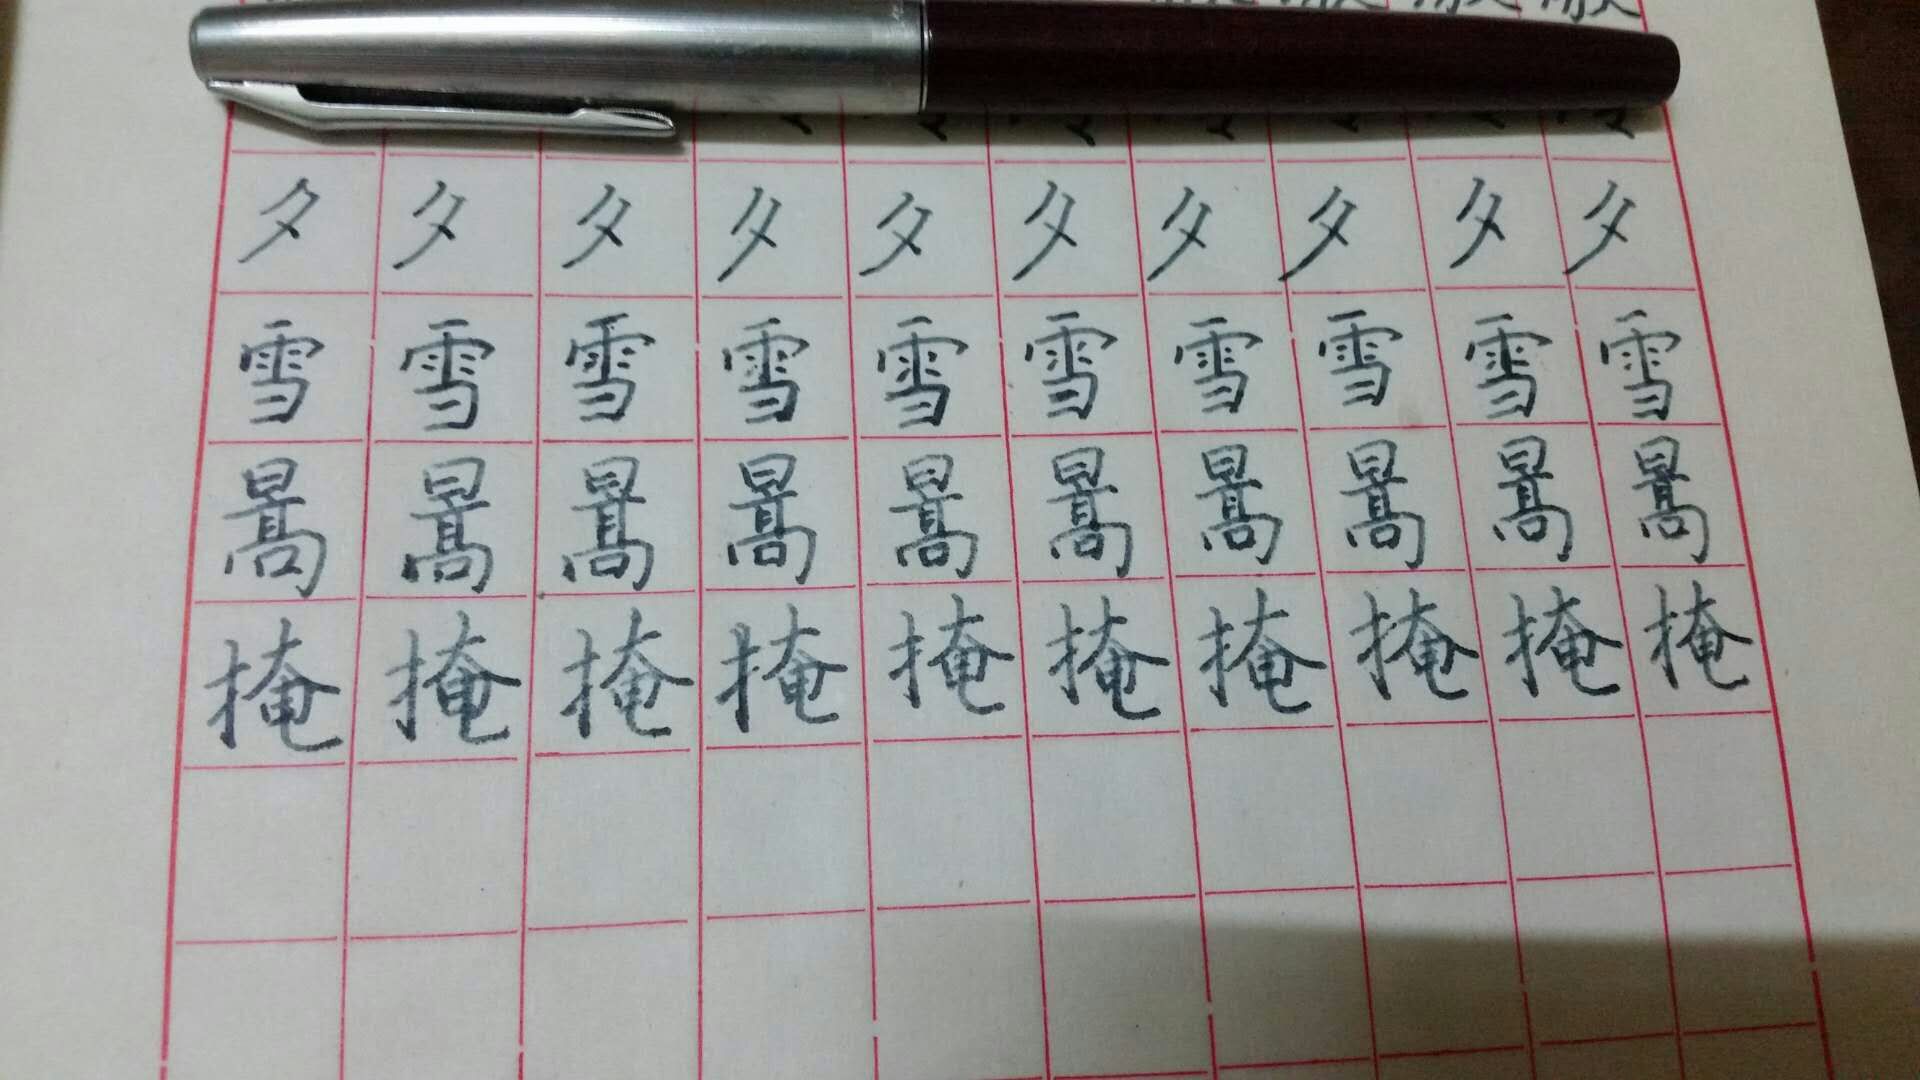 夕夕夕夕夕夕夕夕夕夕
雪雪雪雪雪雪雪雪雪雪
暠暠暠暠暠暠暠暠暠暠
掩掩掩掩掩掩掩掩掩掩